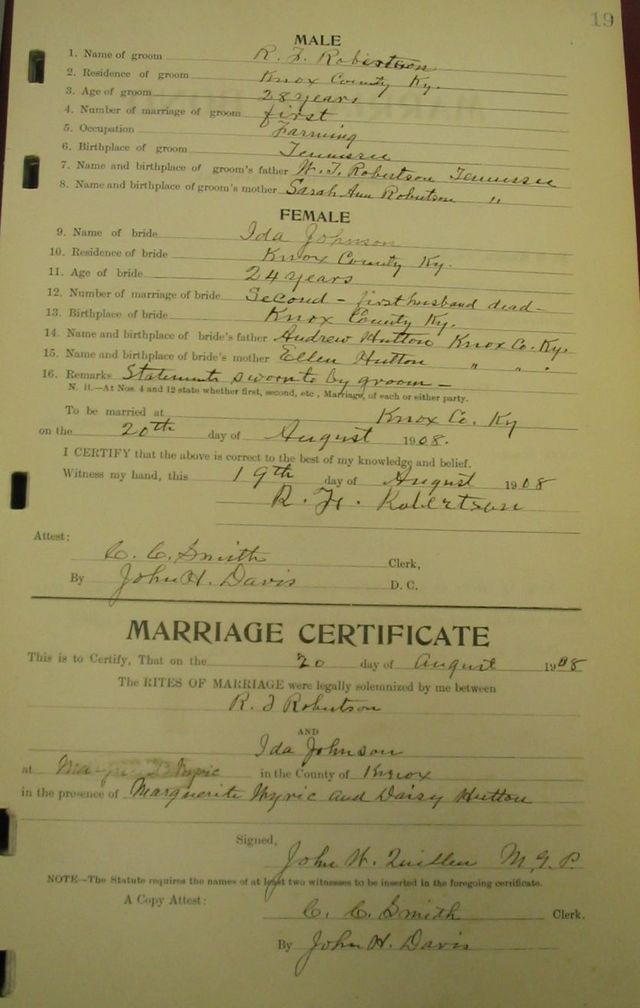 19
MALE
1. Name of groom R. F. Robertson
2. Residence of groom Knox County Ky.
3. Age of groom 28 years
4. Number of marriage of groom first
5. Occupation Farming
6. Birthplace of groom Tennessee
7. Name and birthplace of groom's father W. T. Robertson Tennessee
8. Name and birthplace of groom's mother Sarah Ann Robertson "
FEMALE
9. Name of bride Ida Johnson
10. Residence of bride Knox County Ky.
11. Age of bride 24 years
12. Number of marriage of bride Second - first husband dead -
13. Birthplace of bride Knox County Ky.
14. Name and birthplace of bride's father Andrew Hutton Knox Co. Ky.
15. Name and birthplace of bride's mother Ellen Hutton " " .
16. Remarks Statements sworn to by groom -
N. B.—At Nos. 4 and 12 state whether first, second, etc., Marriage, of each or either party.
To be married at Knox Co. Ky
on the 20th day of August 1908.
I CERTIFY that the above is correct to the best of my knowledge and belief.
Witness my hand, this 19th day of August 1908
R. F. Robertson
Attest:
C. C. Smith Clerk,
By John H. Davis D. C.
MARRIAGE CERTIFICATE
This is to Certify, That on the 20 day of August 1908
The RITES OF MARRIAGE were legally solemnized by me between
R. F Robertson
AND
Ida Johnson
at Myric in the County of Knox
in the presence of Marguerite Myric and Daisy Hutton
Signed,
John W. M. G. P.
NOTE—The Statute requires the names of at least two witnesses to be inserted in the foregoing certificate.
A Copy Attest:
C. C. Smith Clerk.
By John H. Davis